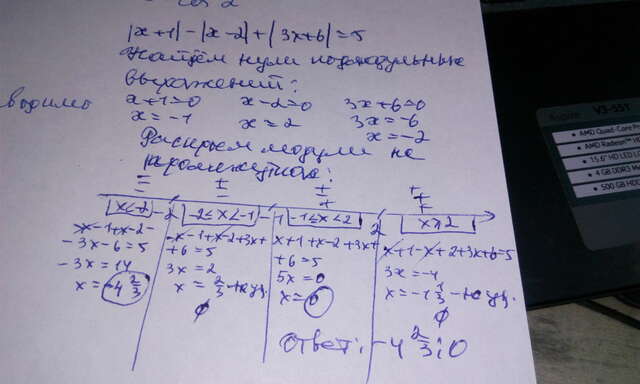 |x+1|-|x-2|+|3x+6|=5
Найдём нули подмодульных
выражений:
x+1=0 x-2=0 3x+6=0
x=-1 x=2 3x=-6
x=-2
Раскроем модули на
промежутках:
x<-2 -2 -2≤x<-1 -1 -1≤x<2 2 x≥2
-x-1+x-2-
-3x-6=5
-3x=14
x=-4 2/3
-x-1+x-2+3x+
+6=5
3x=2
x=2/3
∅
x+1+x-2+3x+
+6=5
5x=0
x=0
x+1-x+2+3x+6=5
3x=-4
x=-1 1/3
∅
Ответ: -4 2/3; 0
V3-551
AMD Quad-Core
AMD Radeon™ H
15.6" HD LED
4 GB DDR3 M
500 GB HD